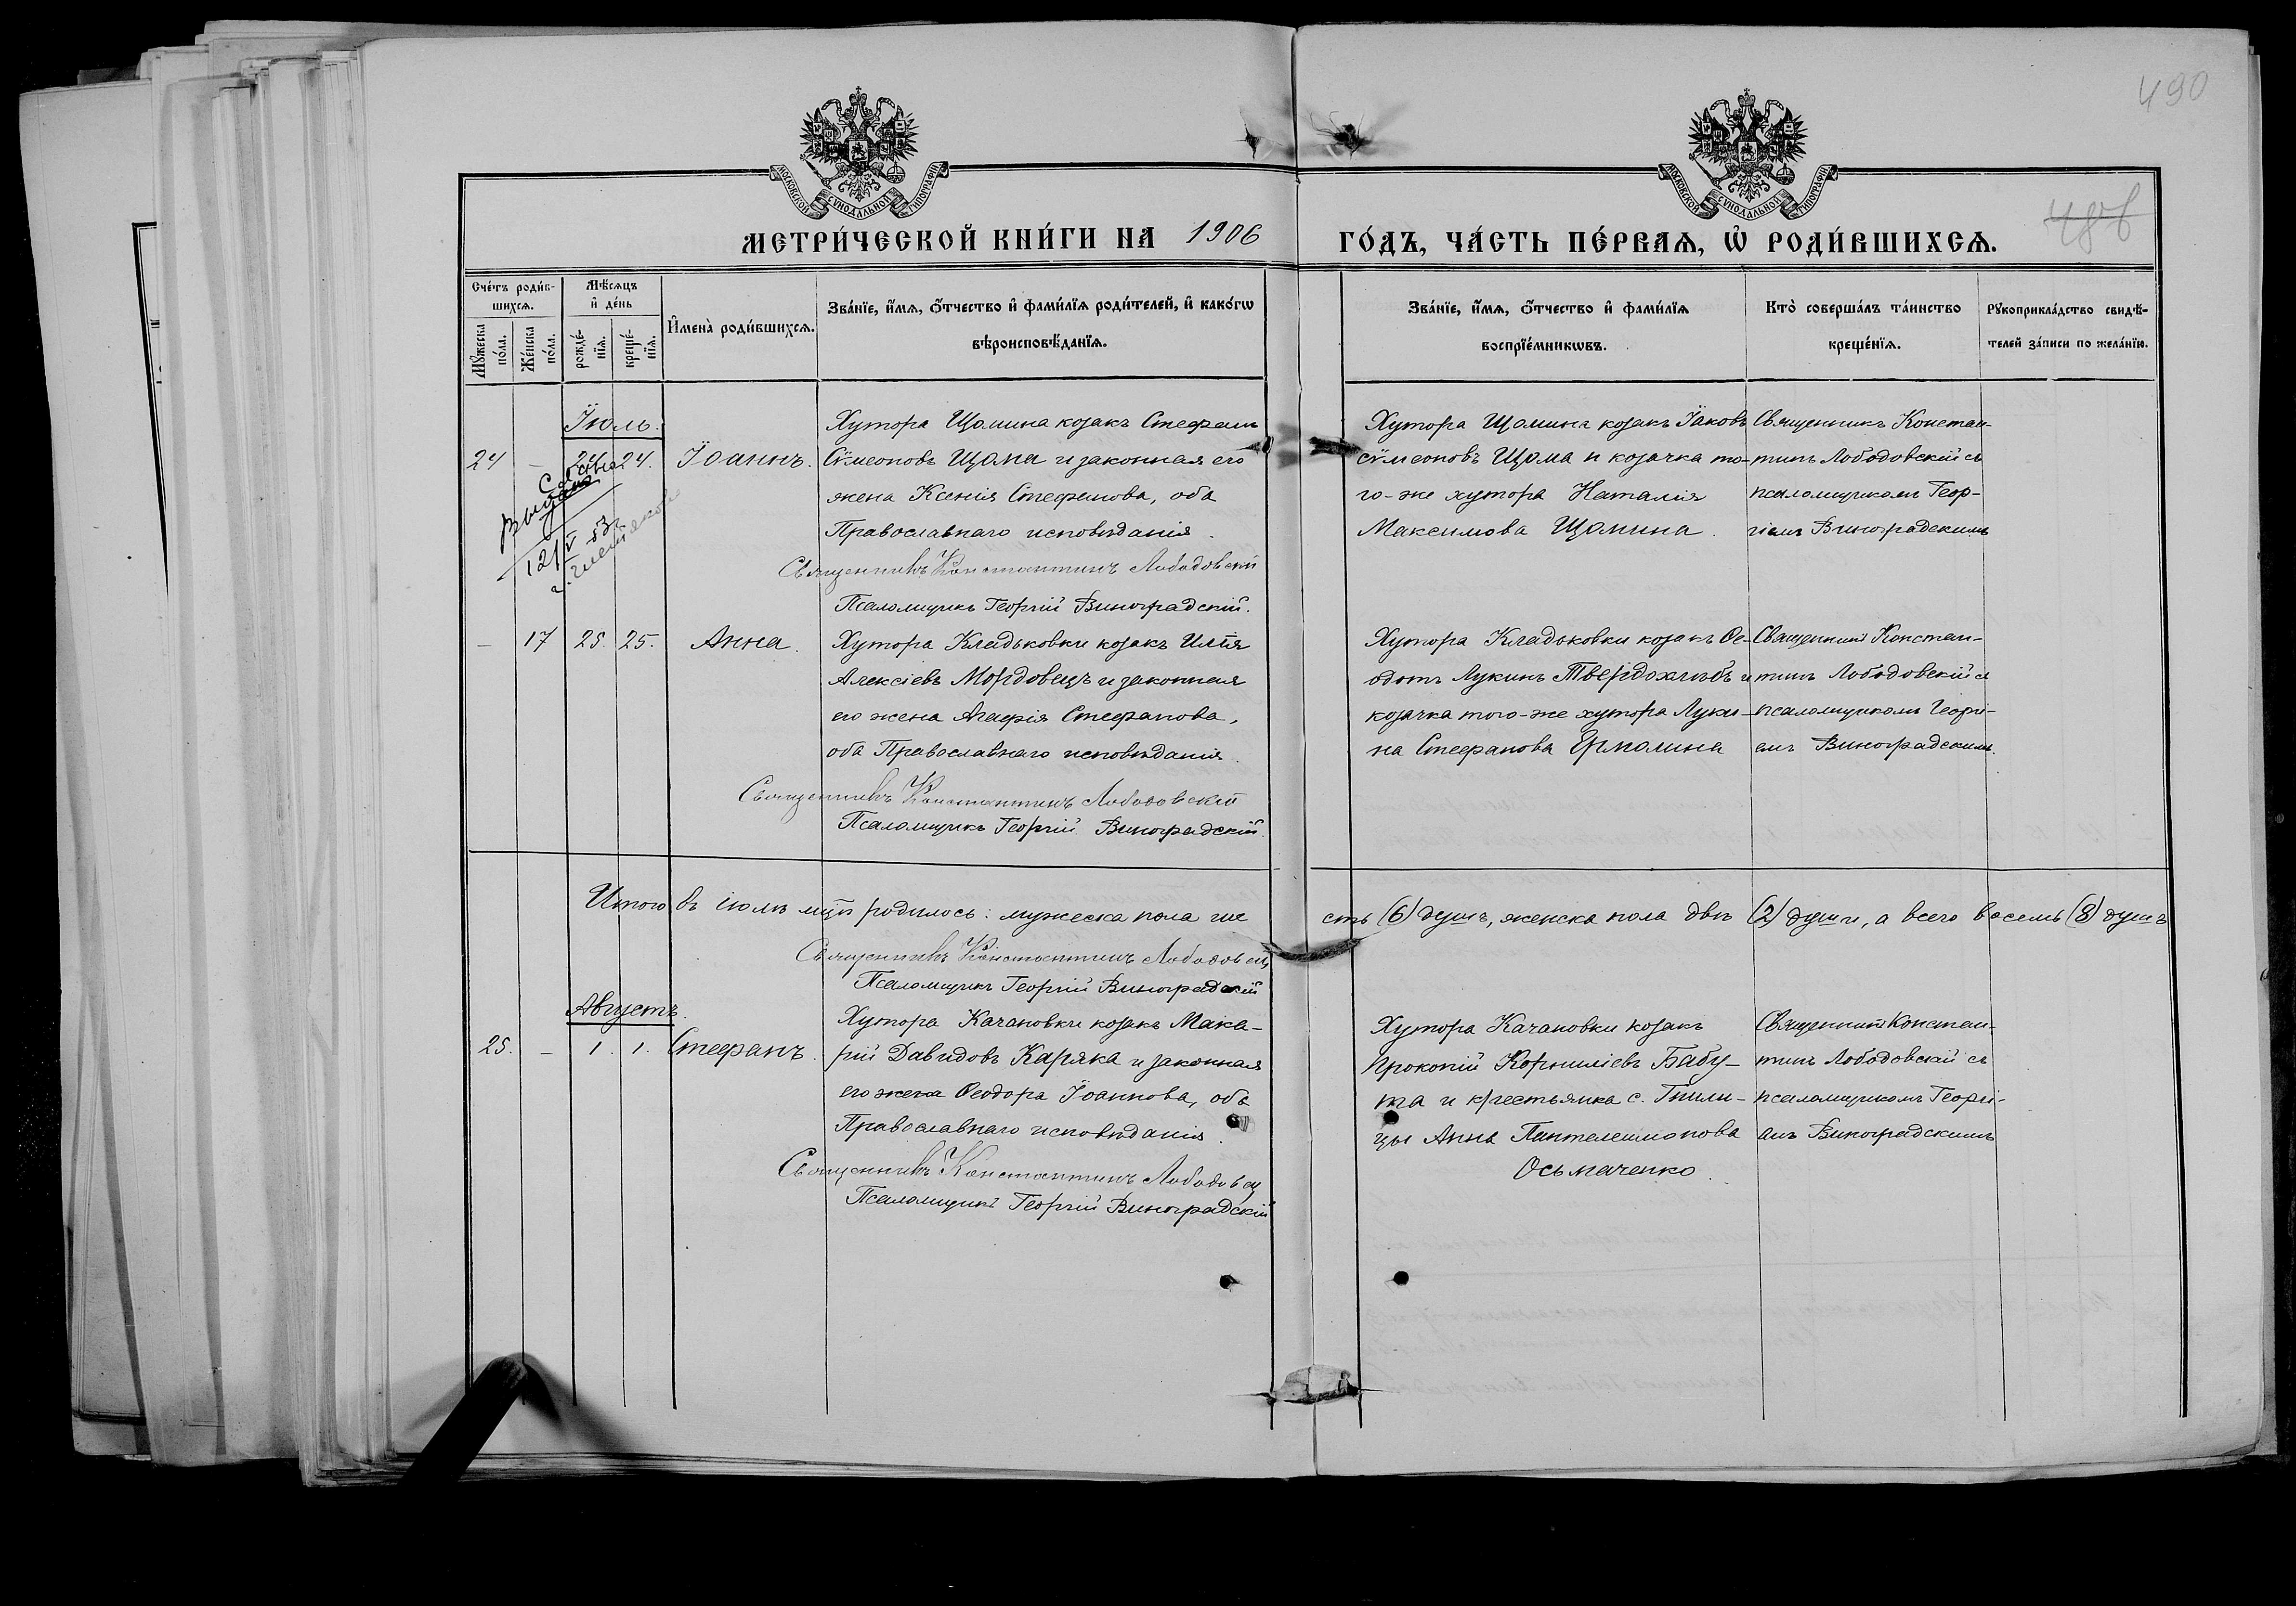 490
МОСКОВСКОЙ СѴНОДАЛЬНОЙ ТИПОГРАФІИ
МОСКОВСКОЙ СѴНОДАЛЬНОЙ ТИПОГРАФІИ
МЕТРИ́ЧЕСКОЙ КНИ́ГИ НА 1906
ГО́ДЪ, ЧА́СТЬ ПЕ́РВАЯ, Ѡ҆ РОДИ́ВШИХСЯ.
Сче́тъ роди́в-
шихся.
Мѣ́сяцъ
и҆ де́нь
Мꙋ́жеска по́ла.
Же́нска по́ла.
рожде́-
нїя.
креще́-
нїя.
И҆мена̀ роди́вшихся.
Зва́нїе, и҆́мя, ѻ҆́тчество и҆ фами́лїя роди́телей, и҆ како́гѡ
вѣроисповѣ́данїя.
Зва́нїе, и҆́мя, ѻ҆́тчество и҆ фами́лїя
воспрїе́мникѡвъ.
Кто̀ соверша́лъ та́инство
креще́нїя.
Рꙋкоприкла́дство свидѣ́-
телей за́писи по жела́нїю.
Їюль.
24 - 24 24. Їоаннъ.
Хутора Щомина козакъ Стефанъ
Сѵмеоновъ Щома и законная его
жена Ксенія Стефанова, оба
Православнаго исповѣданія.
Священникъ Константинъ Лободовскій
Псаломщикъ Георгій Виноградскій.
Хутора Щомина козакъ Їаковъ
Сѵмеоновъ Щома и козачка то-
го-же хутора Наталія
Максимова Щомина.
Священникъ Констан-
тинъ Лободовскій съ
псаломщикомъ Геор-
гіемъ Виноградскимъ
12/V 53
- 17 25. 25. Анна.
Хутора Кладьковки козакъ Илія
Алексіевъ Мордовецъ и законная
его жена Агафія Стефанова,
оба Православнаго исповѣданія.
Священникъ Константинъ Лободовскій
Псаломщикъ Георгій Виноградскій.
Хутора Кладьковки козакъ Ѳе-
одотъ Лукинъ Твердохлѣбъ и
козачка того-же хутора Луки-
на Стефанова Ярмолина
Священникъ Констан-
тинъ Лободовскій съ
псаломщикомъ Георгі-
емъ Виноградскимъ.
Итого въ іюлѣ мцѣ родилось: мужеска пола ше
сть (6) душъ, женска пола двѣ (2) души, а всего восемь (8) душъ
Священникъ Константинъ Лободовскій
Псаломщикъ Георгій Виноградскій
Августъ.
25. - 1. 1. Стефанъ.
Хутора Качановки козакъ Мака-
рій Давидовъ Каряка и законная
его жена Ѳеодора Їоаннова, оба
Православнаго исповѣданія.
Священникъ Константинъ Лободовскій
Псаломщикъ Георгій Виноградскій
Хутора Качановки козакъ
Прокопій Корниліевъ Бабу-
та и крестьянка с. Гнили-
цы Анна Пантелеимонова
Осьмаченко.
Священникъ Констан-
тинъ Лободовскій съ
псаломщикомъ Георгі-
емъ Виноградскимъ